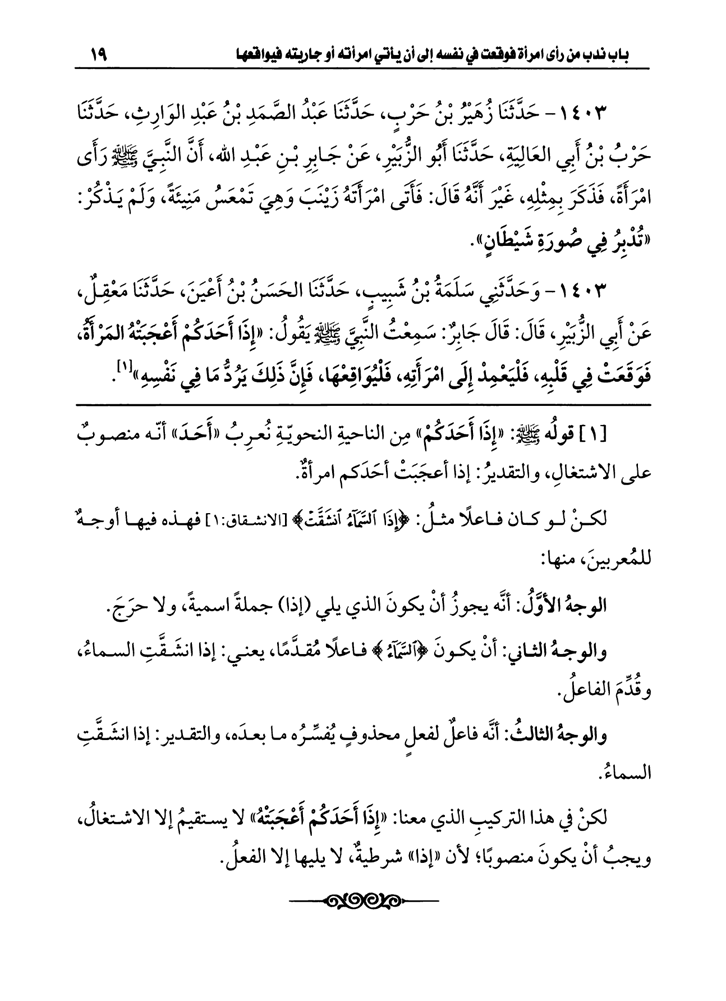 باب ندب من رأى امرأة فوقعت في نفسه إلى أن يأتي امرأته أو جاريته فيواقعها ١٩
١٤٠٣ - حَدَّثَنَا زُهَيْرُ بْنُ حَرْبٍ، حَدَّثَنَا عَبْدُ الصَّمَدِ بْنُ عَبْدِ الوَارِثِ، حَدَّثَنَا
حَرْبُ بْنُ أَبِي العَالِيَةِ، حَدَّثَنَا أَبُو الزُّبَيْرِ، عَنْ جَابِرِ بْنِ عَبْدِ الله، أَنَّ النَّبِيَّ ﷺ رَأَى
امْرَأَةً، فَذَكَرَ بِمِثْلِهِ، غَيْرَ أَنَّهُ قَالَ: فَأَتَى امْرَأَتَهُ زَيْنَبَ وَهِيَ تَمْعَسُ مَنِيئَةً، وَلَمْ يَذْكُرْ:
«تُدْبِرُ فِي صُورَةِ شَيْطَانٍ».
١٤٠٣ - وَحَدَّثَنِي سَلَمَةُ بْنُ شَبِيبٍ، حَدَّثَنَا الحَسَنُ بْنُ أَعْيَنَ، حَدَّثَنَا مَعْقِلٌ،
عَنْ أَبِي الزُّبَيْرِ، قَالَ: قَالَ جَابِرٌ: سَمِعْتُ النَّبِيَّ ﷺ يَقُولُ: «إِذَا أَحَدَكُمْ أَعْجَبَتْهُ المَرْأَةُ،
فَوَقَعَتْ فِي قَلْبِهِ، فَلْيَعْمِدْ إِلَى امْرَأَتِهِ، فَلْيُوَاقِعْهَا، فَإِنَّ ذَلِكَ يَرُدُّ مَا فِي نَفْسِهِ»[١].
[١] قولُه ﷺ: «إِذَا أَحَدَكُمْ» مِن الناحيةِ النحويّةِ نُعرِبُ «أَحَدَ» أنّه منصوبٌ
على الاشتغالِ، والتقديرُ: إذا أعجَبَتْ أحَدَكم امرأةٌ.
لكنْ لو كان فاعلًا مثلُ: ﴿إِذَا ٱلسَّمَآءُ ٱنشَقَّتْ﴾ [الانشقاق:١] فهذه فيها أوجهٌ
للمُعربينَ، منها:
الوجهُ الأوَّلُ: أنَّه يجوزُ أنْ يكونَ الذي يلي (إذا) جملةً اسميةً، ولا حرَجَ.
والوجهُ الثاني: أنْ يكونَ ﴿ٱلسَّمَآءُ﴾ فاعلًا مُقدَّمًا، يعني: إذا انشَقَّتِ السماءُ،
وقُدِّمَ الفاعلُ.
والوجهُ الثالثُ: أنَّه فاعلٌ لفعلٍ محذوفٍ يُفسِّرُه ما بعدَه، والتقدير: إذا انشَقَّتِ
السماءُ.
لكنْ في هذا التركيبِ الذي معنا: «إِذَا أَحَدَكُمْ أَعْجَبَتْهُ» لا يستقيمُ إلا الاشتغالُ،
ويجبُ أنْ يكونَ منصوبًا؛ لأن «إذا» شرطيةٌ، لا يليها إلا الفعلُ.